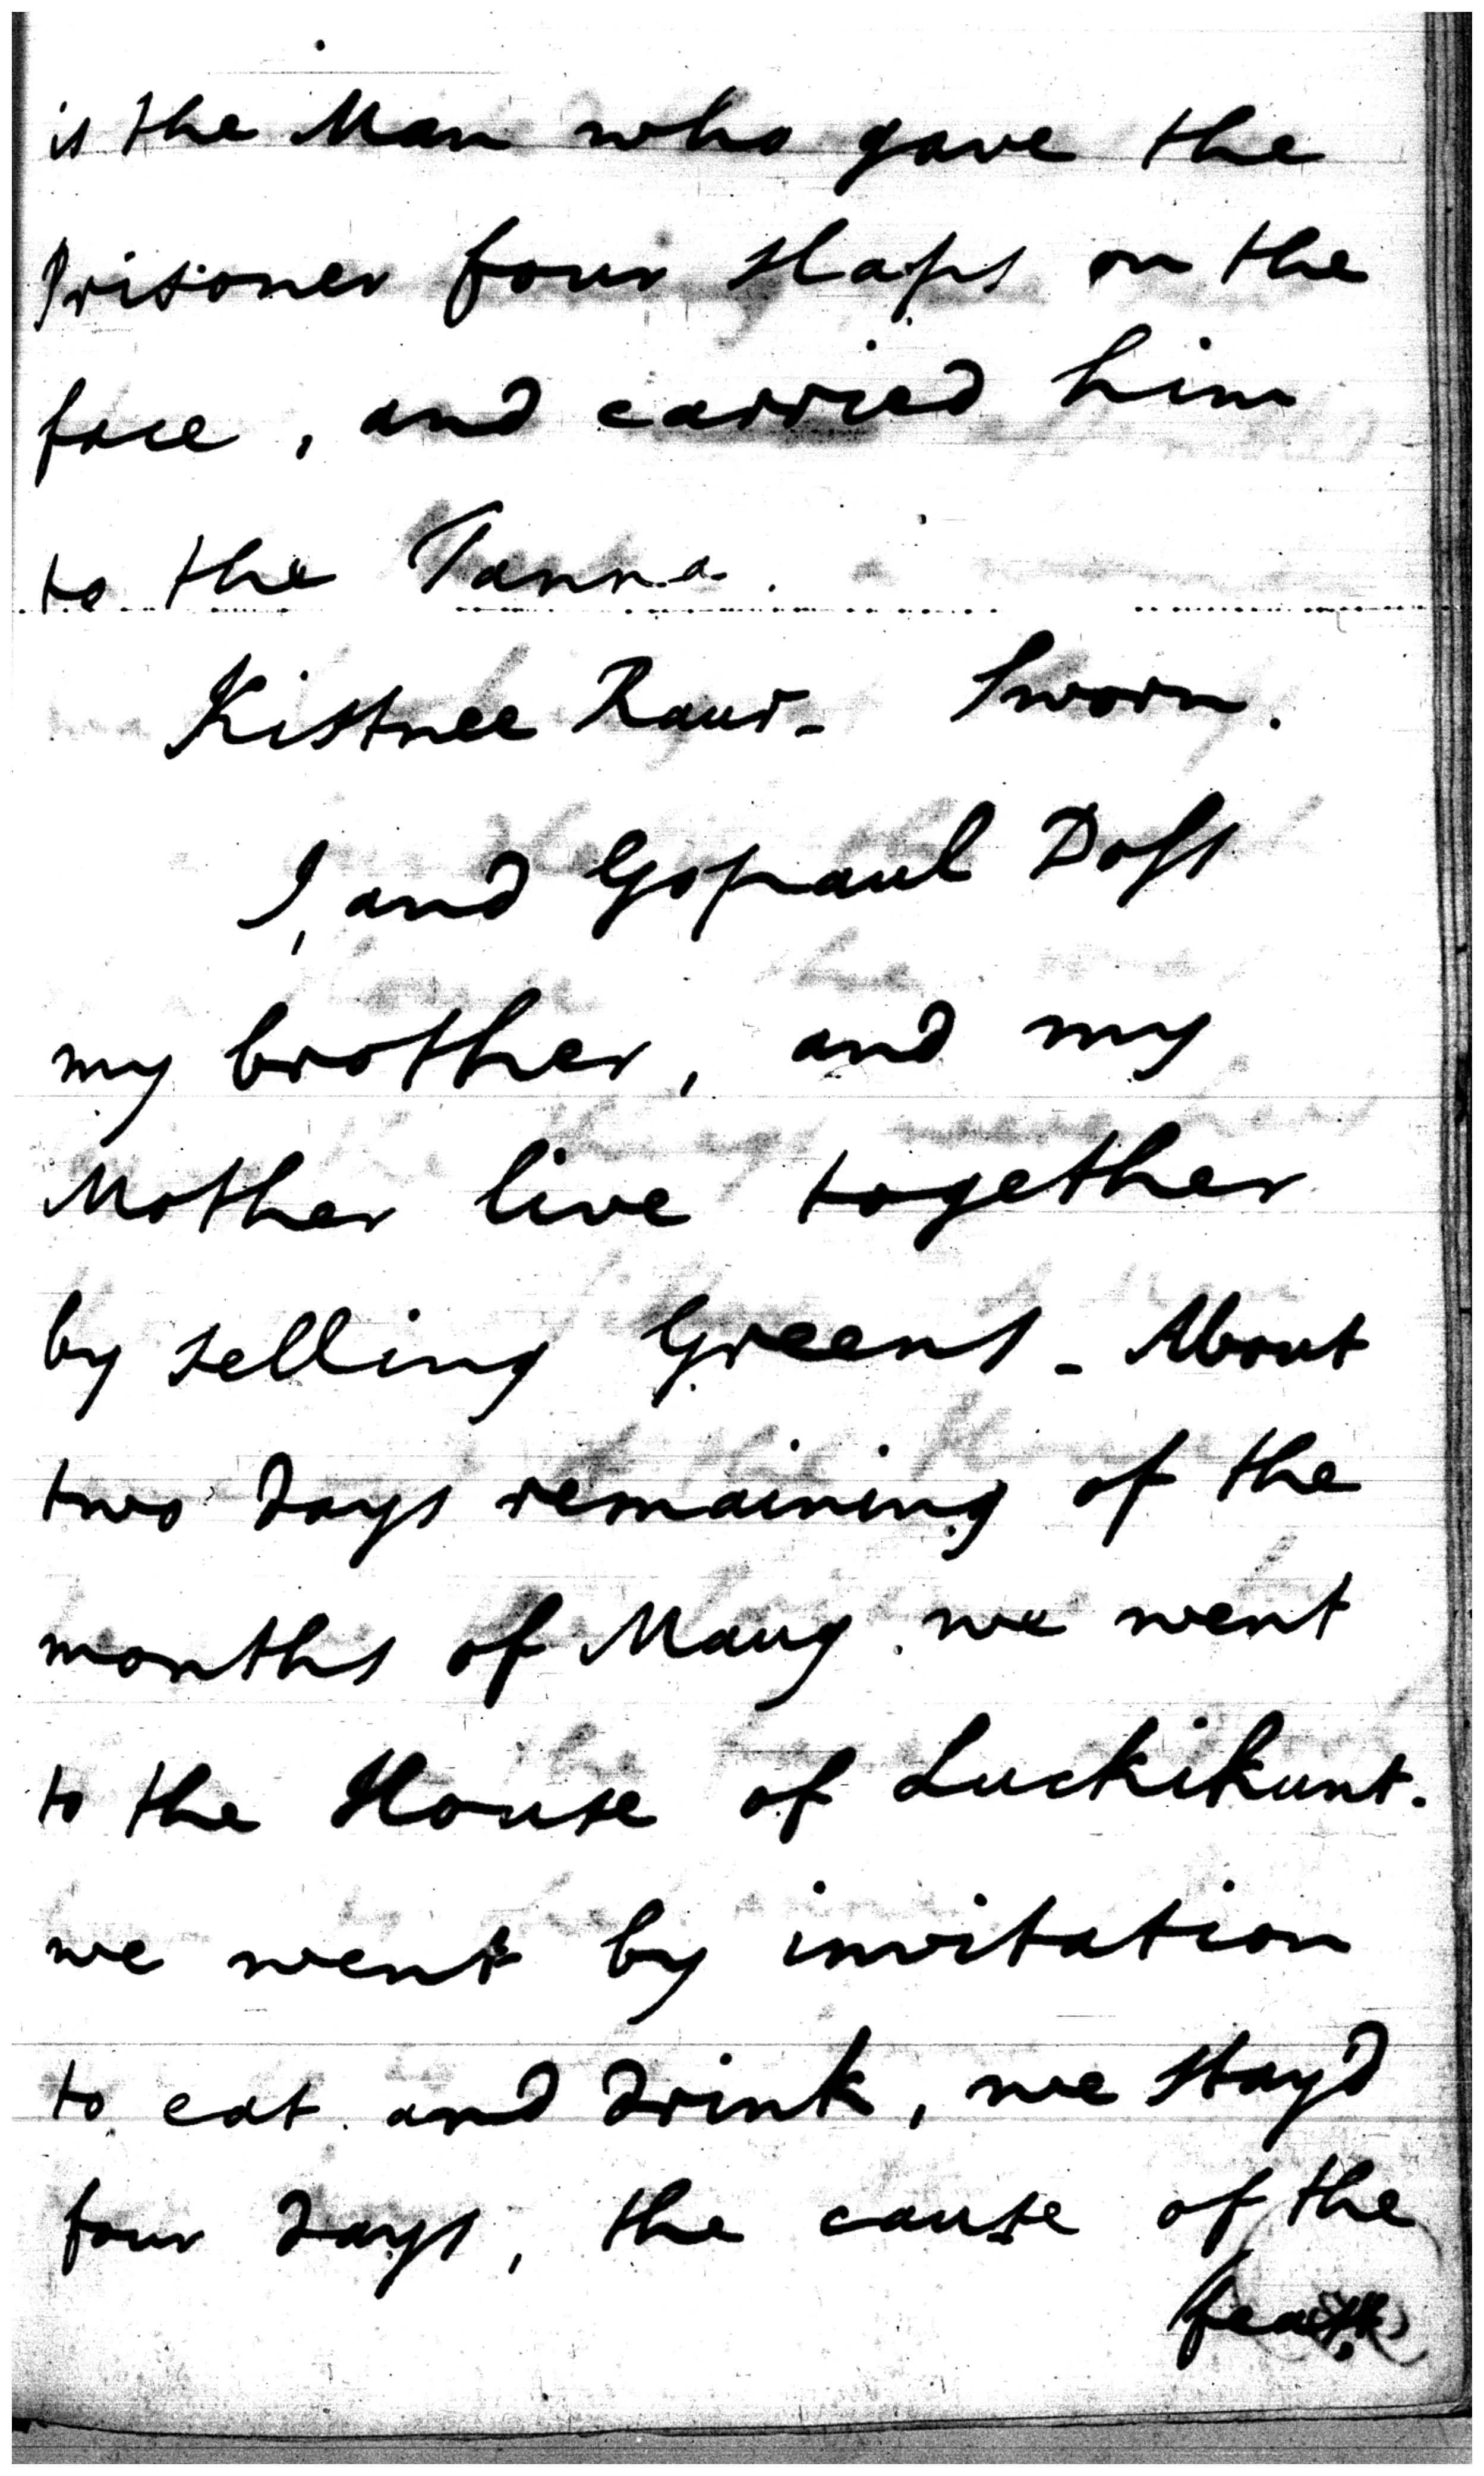 is the Man who gave the
Prisoner four slaps on the
face, and carried him
to the Tanna.
Kistnee Raur - Sworn.
I, and Gopaul Doss
my brother, and my
Mother live together
by selling Greens - About
two days remaining of the
months of Maug we went
to the House of Luckikunt.
we went by invitation
to eat and drink, we stay'd
four days, the cause of the
feast